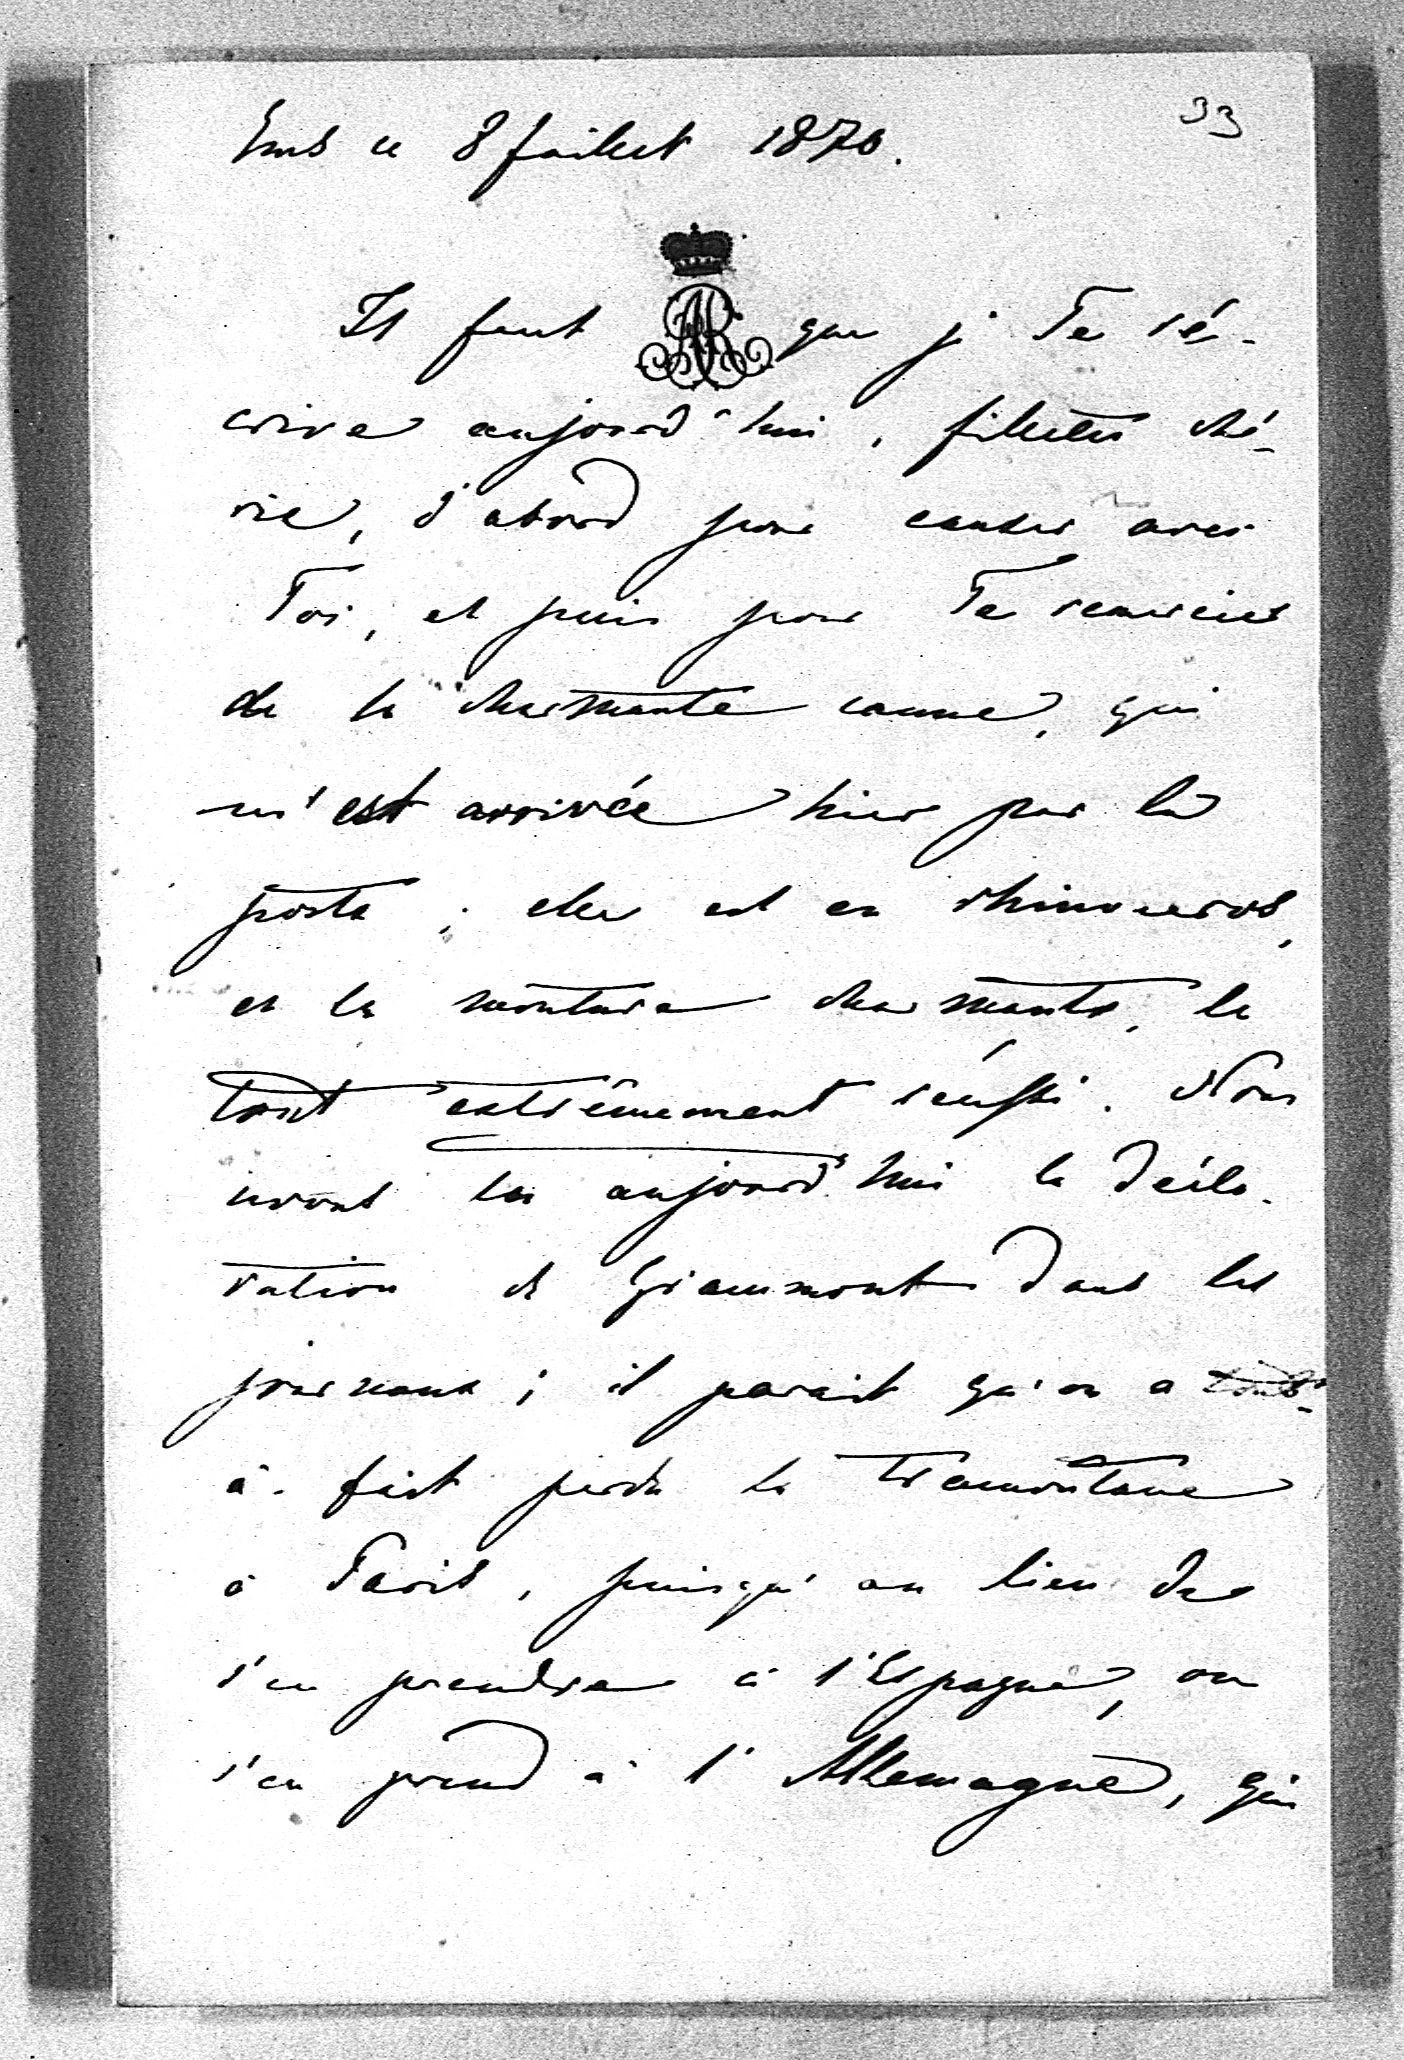 33
Ems ce 8 Juillet 1870.
Il faut que je Te ré-
crive aujourd'hui, fillette ché-
rie, d'abord pour causer avec
Toi, et puis pour Te remercier
de la charmante canne, qui
m'est arrivée hier par la
poste; elle est en rhinoceros,
et la monture charmante, le
tout extrêmement réussi. Nous
avons lu aujourd'hui la décla-
ration de Grammont dans les
journaux; il parait qu'on a tout-
à-fait perdu la tramontane
à Paris, puisqu'au lieu de
s'en prendre à l'Espagne, on
s'en prend à l'Allemagne, qui